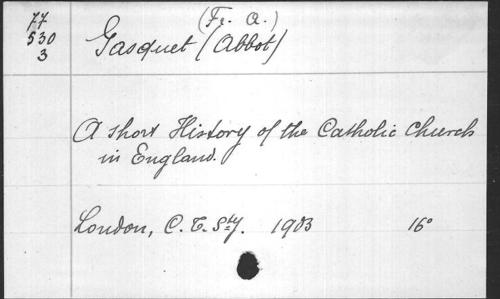 77
530
3
(Fr. A.)
Gasquet (Abbot)
A short History of the Catholic Church
in England.
London, C. T. Sty. 1903 16°